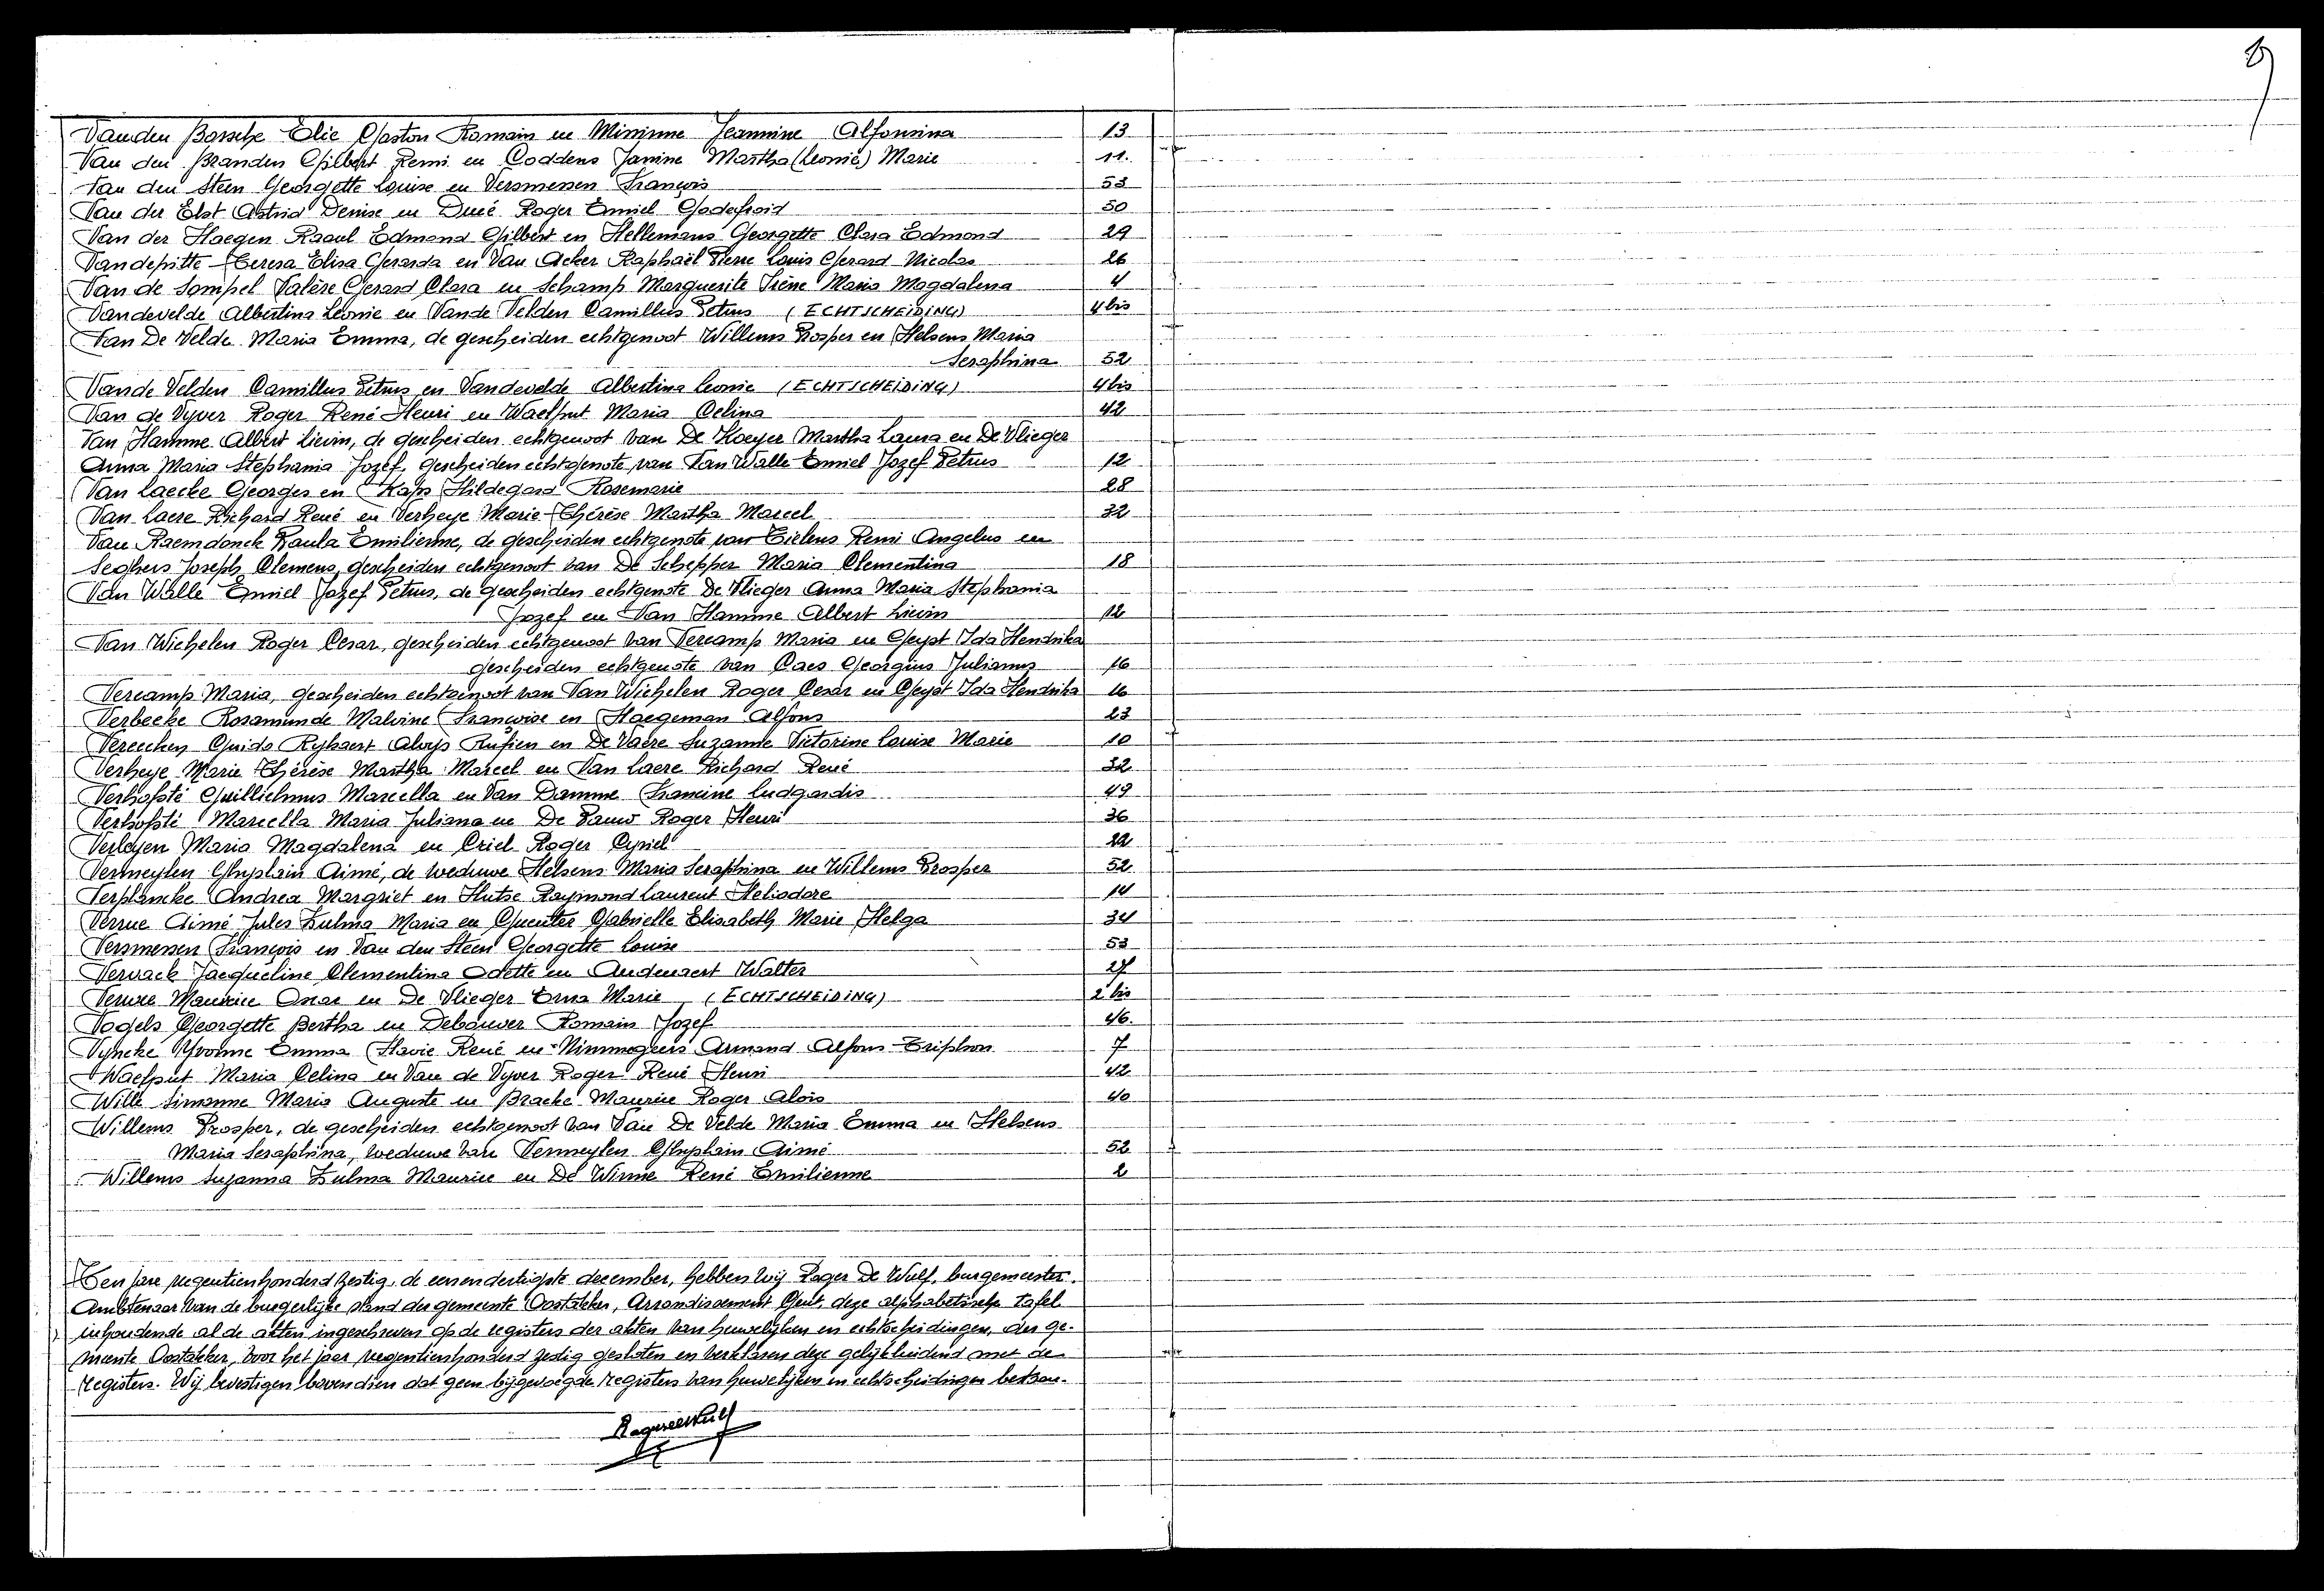 Vanden Bossche Elie Gaston Romain en Minjnne Jeannine Alfonsina 13
Van den Branden Gilbert Remi en Coddens Janine Martha (Leonie) Marie 11.
Van den Steen Georgette Louise en Versmessen François 53
Van der Elst Astrid Denise en Dueé Roger Emiel Godefroid 50
Van der Haegen Raoul Edmond Gilbert en Hellemans Georgette Clara Edmond 29
Vandepitte Teresa Elisa Gerarda en Van Acker Raphaël Pierre Louis Gerard Nicolas 26
Van de Sompel Valère Gerard Clara en Schamp Marguerite Irène Maria Magdalena 4
Vandevelde Albertina Leonie en Vande Velden Camillus Petrus (ECHTSCHEIDING) 4 bis
Van De Velde Maria Emma, de gescheiden echtgenoot Willems Prosper en Helsens Maria
Seraphina 52
Vande Velden Camillus Petrus en Vandevelde Albertina Leonie (ECHTSCHEIDING) 4 bis
Van de Vyver Roger René Henri en Waelput Maria Celina 42
Van Hamme Albert Lievin, de gescheiden echtgenoot van De Koeyer Martha Laura en De Vlieger
Anna Maria Stephania Jozef, gescheiden echtgenote van Van Walle Emiel Jozef Petrus 12
Van Laecke Georges en Kaps Hildegard Rosemarie 28
Van Laere Richard René en Verheye Marie-Thérèse Martha Marcel 32
Van Raemdonck Paula Emilienne, de gescheiden echtgenote van Tielens Remi Angelus en
Seghers Joseph Clemens, gescheiden echtgenoot van De Schepper Maria Clementina 18
Van Walle Emiel Jozef Petrus, de gescheiden echtgenote De Vlieger Anna Maria Stephania
Jozef en Van Hamme Albert Lievin 12
Van Wichelen Roger Cesar, gescheiden echtgenoot van Vercamp Maria en Geyst Ida Hendrika
gescheiden echtgenote van Caes Georgius Julianus 16
Vercamp Maria, gescheiden echtgenoot van Van Wichelen Roger Cesar en Geyst Ida Hendrika 16
Verbeeke Rosamunde Malvine Françoise en Haegeman Alfons 23
Vereecken Guido Rykaert Aloys Rufien en De Vaere Suzanne Victorine Louise Marie 10
Verheye Marie Thérèse Martha Marcel en Van Laere Richard René 32
Verhofsté Guillielmus Marcella en Van Damme Francine Ludgardis 49
Verhofsté Marcella Maria Juliana en De Pauw Roger Henri 36
Verleyen Maria Magdalena en Criel Roger Cyriel 22
Vermeylen Ghyslain Aimé, de weduwe Helsens Maria Seraphina en Willems Prosper 52
Verplancke Andrea Margriet en Hutse Raymond Laurent Heliodore 14
Verrue Aimé Jules Zulma Maria en Guenter Gabrielle Elisabeth Marie Helga 34
Versmessen François en Van den Steen Georgette Louise 53
Vervack Jacqueline Clementina Odette en Audenaert Walter 27
Maurice Oscar en De Vlieger Erna Marie (ECHTSCHEIDING) 2 bis
Vogels Georgette Bertha en Debouver Romain Jozef 46.
Vyncke Yvonne Emma Flavie René en Nimmegeers Armand Alfons Triphon 7
Waelput Maria Celina en Van de Vyver Roger René Henri 42
Wille Simonne Maria Auguste en Bracke Maurice Roger Aloïs 40
Willems Prosper, de gescheiden echtgenoot van Van De Velde Maria Emma en Helsens
Maria Seraphina, weduwe van Vermeylen Ghyslain Aimé 52
Willems Suzanna Zulma Maurice en De Winne René Emilienne 2
Ten jare negentienhonderd zestig, de eenendertigste december, hebben wij Roger De Wulf, burgemeester,
Ambtenaar van de burgerlijke stand der gemeente Oostakker, Arrondissement Gent, deze alphabetische tafel
inhoudende al de akten ingeschreven op de registers der akten van huwelijken en echtscheidingen, der ge-
meente Oostakker, voor het jaar negentienhonderd zestig gesloten en verklaren deze gelijkluidend met de
registers. Wij bevestigen bovendien dat geen bijgevoegde registers van huwelijken en echtscheidingen bestaan.